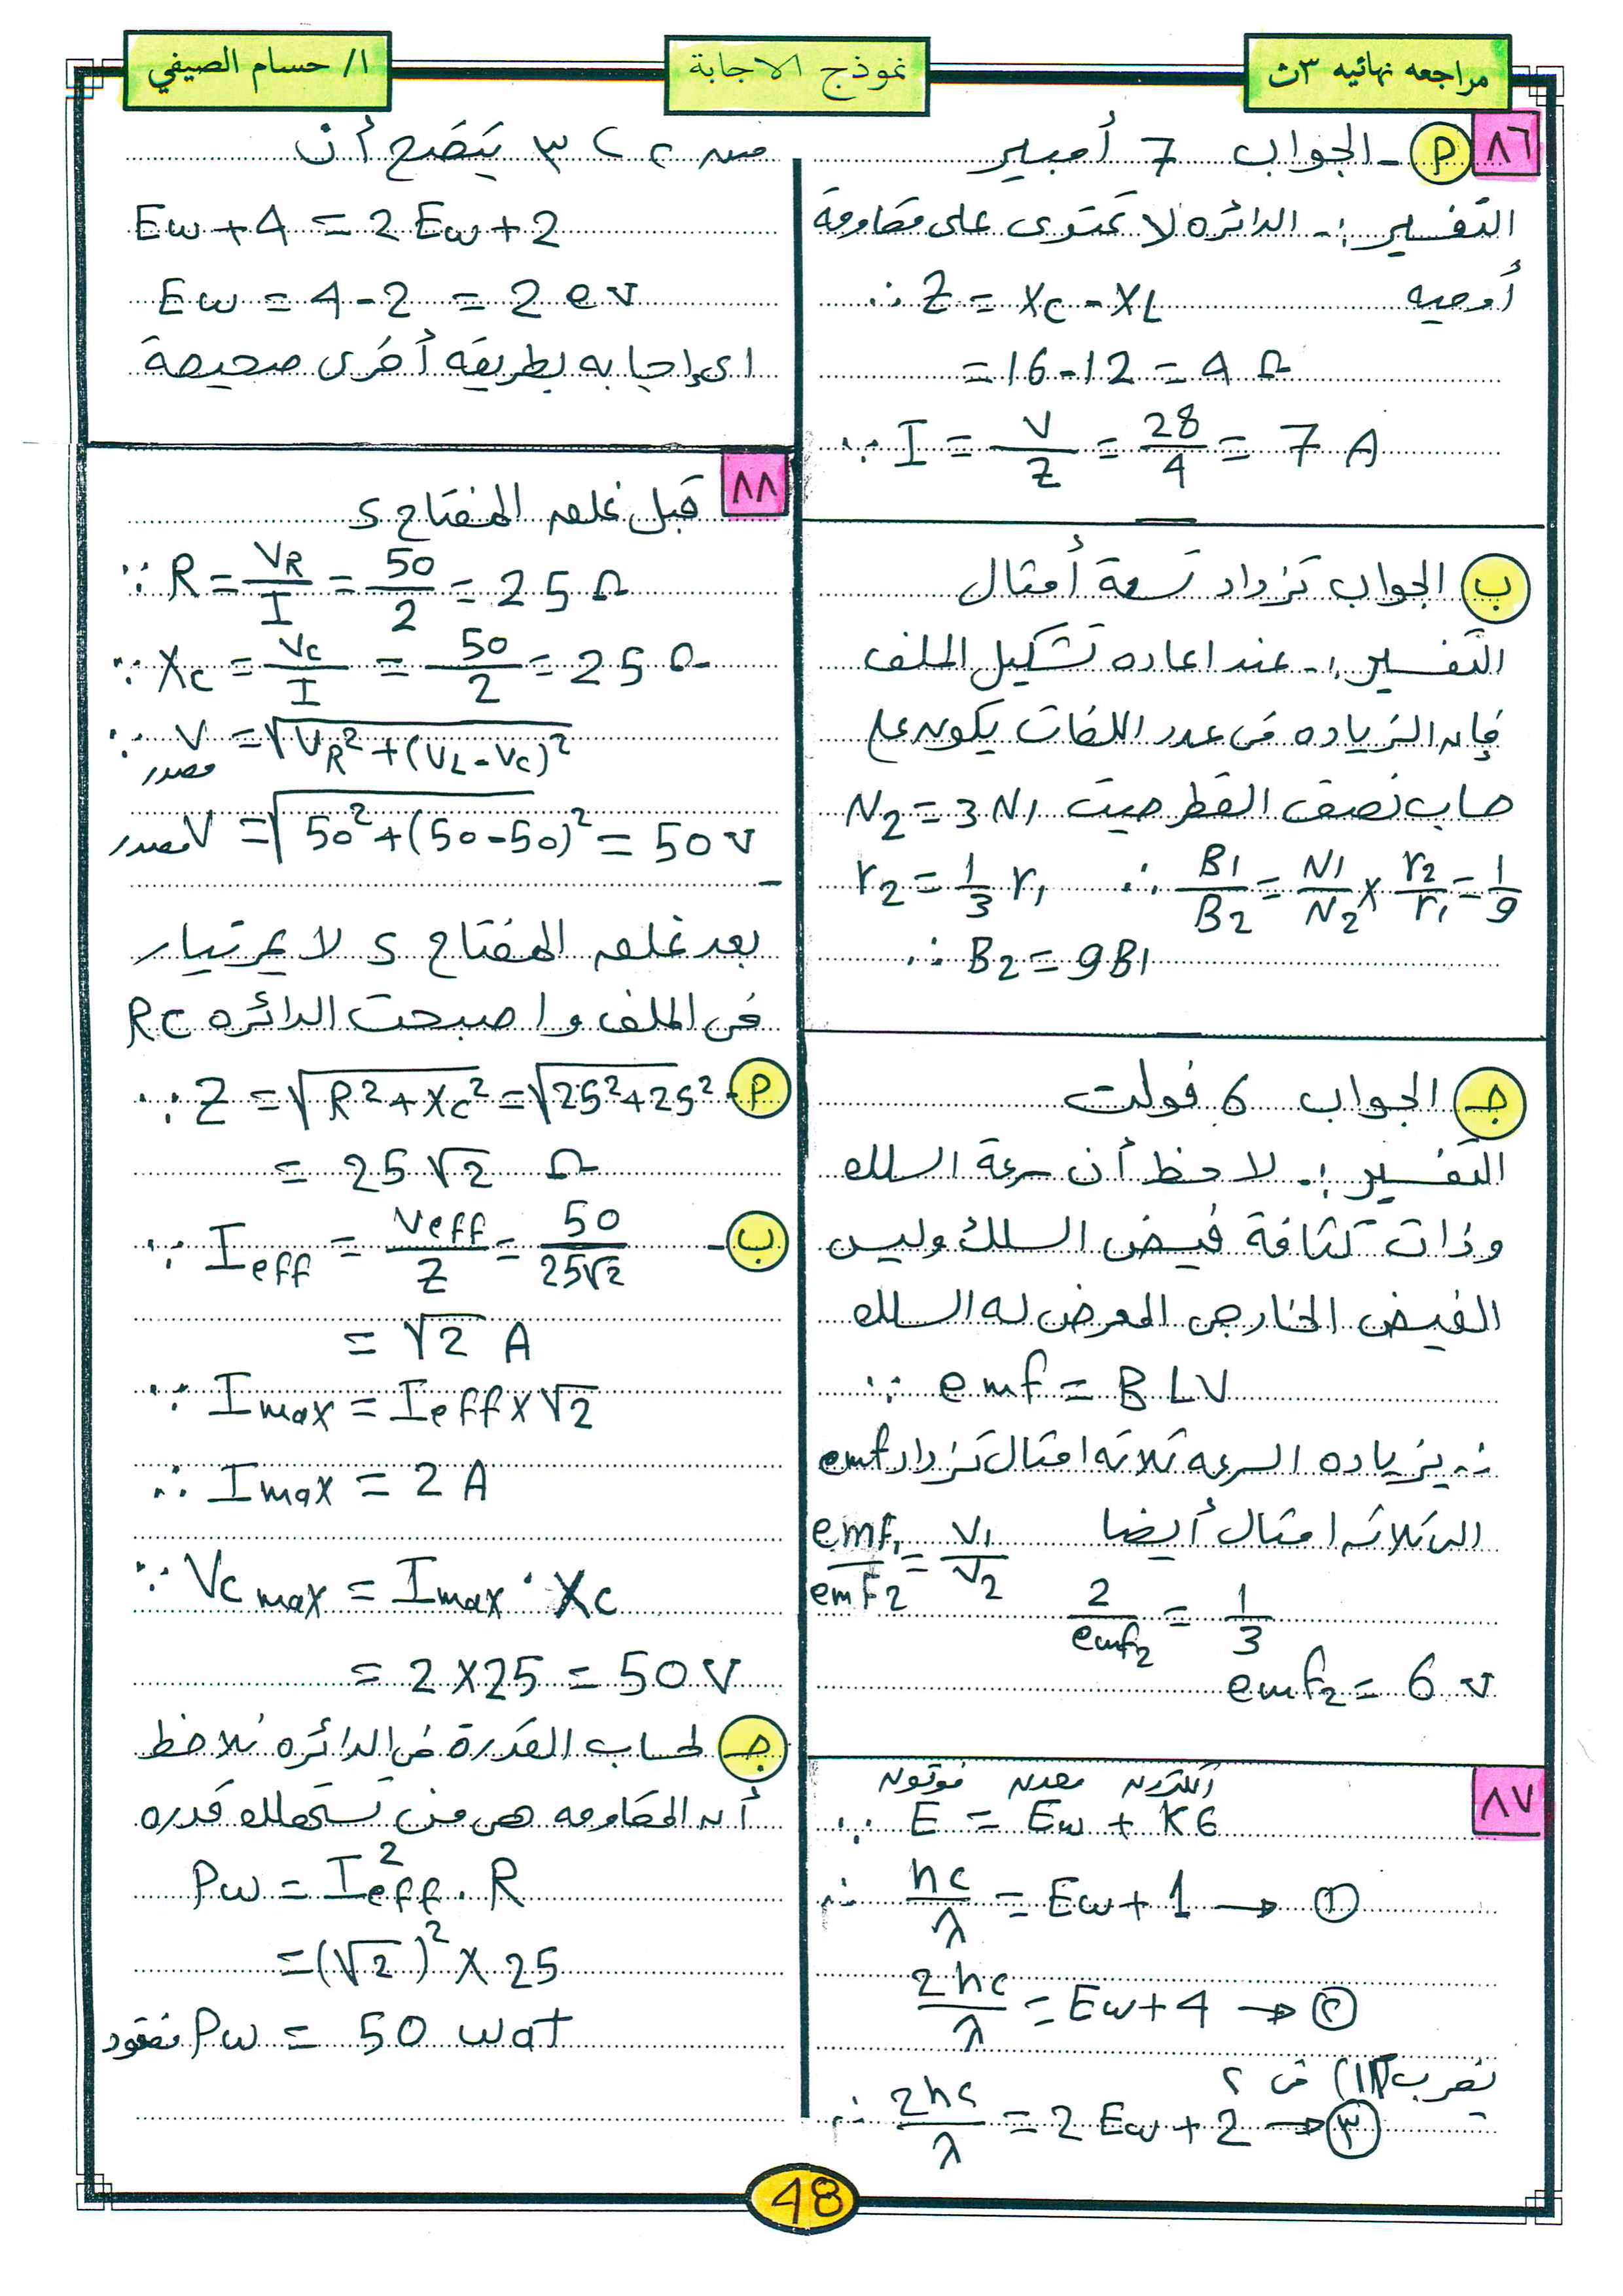 مراجعه نهائيه ٣ث
نموذج الاجابة
ا/ حسام الصيفي
٨٦
أ - الجواب 7 أمبير
التفسير :- الدائره لا تحتوى على مقاومة
أوميه ∴ Z = XC - XL
= 16 - 12 = 4 Ω
∵ I = V/Z = 28/4 = 7 A
ب الجواب تزداد تسعة أمثال
التفسير :- عند اعاده تشكيل الملف
فإن الزياده فى عدد اللفات يكون على
حساب نصف القطر حيث N2 = 3 N1
r2 = 1/3 r1 ∴ B1/B2 = N1/N2 × r2/r1 = 1/9
∴ B2 = 9B1
جـ الجواب 6 فولت
التفسير :- لاحظ أن سرعة السلك
وذات كثافة فيض السلك وليس
الفيض الخارجى المعرض له السلك
∵ emf = B L V
∴ بزياده السرعه ثلاثه امثال تزداد emf
الى ثلاثه امثال أيضا emf1/emf2 = V1/V2
2/emf2 = 1/3
emf2 = 6 v
٨٧
فوتون معدن الكترون
∵ E = Ew + KE
∴ hc/λ = Ew + 1 → ①
2hc/λ = Ew + 4 → ②
بضرب (1) فى ٢
∴ 2hc/λ = 2 Ew + 2 → ③
من ٢ ، ٣ يتضح أن
Ew + 4 = 2 Ew + 2
Ew = 4 - 2 = 2 ev
اى إجابه بطريقه أخرى صحيحة
٨٨
قبل غلق المفتاح S
∵ R = VR/I = 50/2 = 25 Ω
∵ Xc = Vc/I = 50/2 = 25 Ω
∵ V مصدر = √(VR² + (VL - Vc)²)
V مصدر = √(50² + (50 - 50)²) = 50 v
بعد غلق المفتاح S لا يمر تيار
فى الملف واصبحت الدائره RC
أ - ∵ Z = √(R² + Xc²) = √(25² + 25²)
= 25 √2 Ω
ب - ∵ Ieff = Veff/Z = 50/25√2
= √2 A
∵ Imax = Ieff × √2
∴ Imax = 2 A
∵ Vc max = Imax · Xc
= 2 × 25 = 50 V
جـ لحساب القدرة فى الدائره نلاحظ
أن المقاومه هى من تستهلك قدره
Pw = I²eff . R
= (√2)² × 25
Pw = 50 wat
48